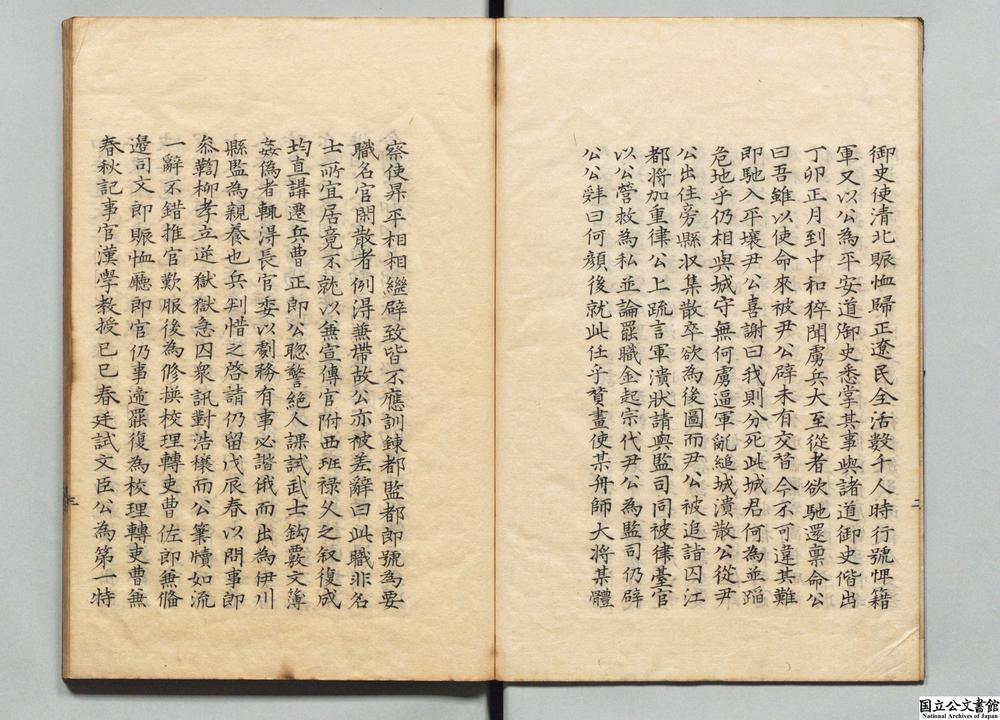 御史使清北賑恤歸正遼民全活数千人時行號牌籍
軍又以公為平安道御史悉掌其事與諸道御史偕出
丁卯正月到中和猝聞虜兵大至從者欲馳還稟命公
曰吾雖以使命來被尹公辟未有交替今不可違其難
即馳入平壤尹公喜謝曰我則分死此城君何為並蹈
危地乎仍相與城守無何虜逼軍亂縋城潰散公從尹
公出住旁縣収集散卒欲為後圖而尹公被追詣囚江
都将加重律公上疏言軍潰狀請與監司同被律臺官
以公營救為私並論罷職金起宗代尹公為監司仍辟
公公辞曰何顔後就此任乎賛畫使某舟師大将某體
察使昇平相相繼辟致皆不應訓鍊都監都即號為要
職名官閑散者例得兼帶故公亦被差辭曰此職非名
士所宜居竟不就以無宣傳官附西班禄久之叙復成
均直講遷兵曹正即公聦警絶人課試武士鈎覈文簿
姦偽者輒得長官委以劇務有事必諮俄而出為伊川
縣監為親養也兵判惜之啓請仍留戊辰春以問事即
叅鞫柳孝立逆獄獄急囚衆訊對浩穰而公筆牘如流
一辭不錯推官歎服後為修撰校理轉吏曹佐即無俻
邊司文即賑恤廳即官仍事遞罷復為校理轉吏曹無
春秋記事官漢學教授己巳春廷試文臣公為第一特
二
三
国立公文書館
National Archives of Japan